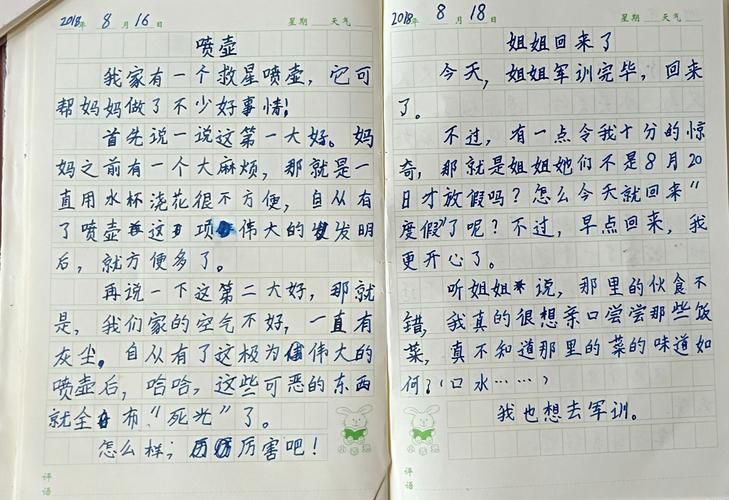 2018年 8月16日 星期 天气
喷壶
我家有一个救星喷壶,它可
帮妈妈做了不少好事情!
首先说一说这第一大好。妈
妈之前有一个大麻烦,那就是一
直用水杯浇花很不方便,自从有
了喷壶这项伟大的发明
后,就方便多了。
再说一下这第二大好,那就
是,我们家的空气不好,一直有
灰尘。自从有了这极为伟大的
喷壶后,哈哈,这些可恶的东西
就全部“死光”了。
怎么样;厉害吧!
评语
2018年 8月18日 星期 天气
姐姐回来了
今天,姐姐军训完毕,回来
了。
不过,有一点令我十分的惊
奇,那就是姐姐她们不是8月20
日才放假吗?怎么今天就回来“
度假”了呢?不过,早点回来,我
更开心了。
听姐姐说,那里的伙食不
错,我真的很想亲口尝尝那些饭
菜,真不知道那里的菜的味道如
何?(口水……)
我也想去军训。
评语